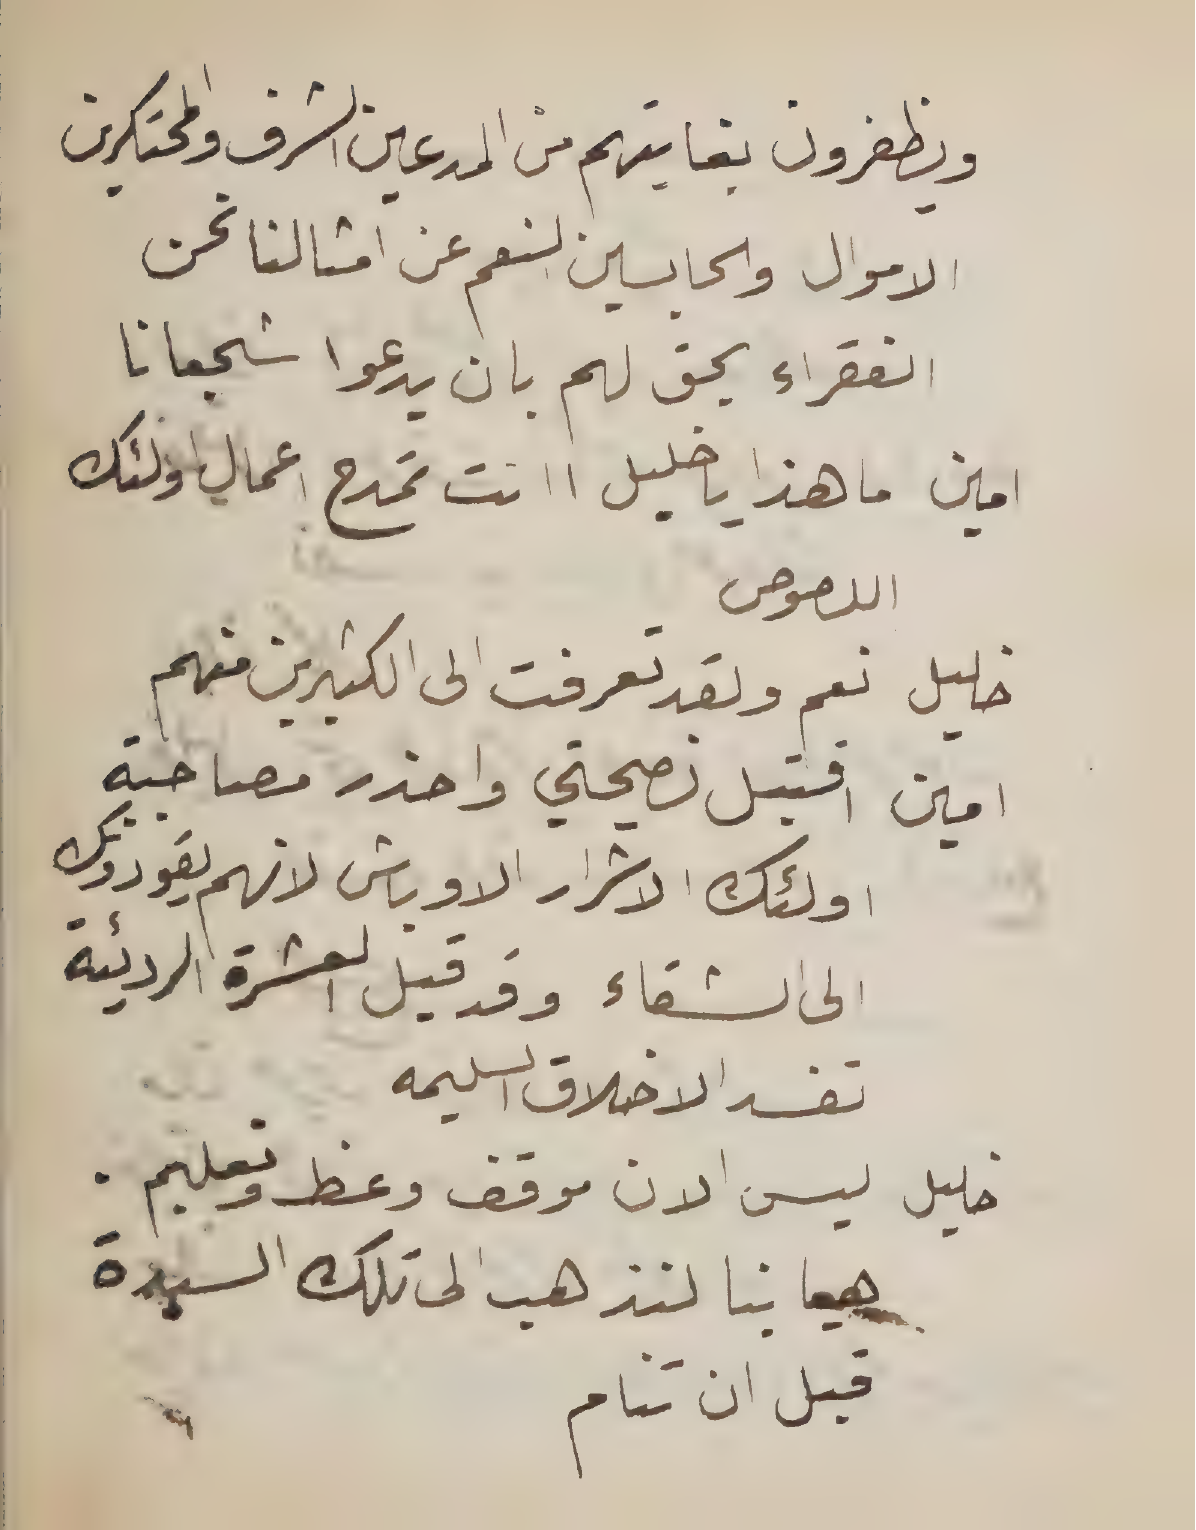 ويظفرون بغايتهم من المدعين الشرف والمحتكرين
الاموال والحابسين النعم عن امثالنا نحن
الفقراء يحق لهم بان يدعوا شجعانا
امين ما هذا يا خليل اانت تمدح اعمال اولئك
اللصوص
خليل نعم ولقد تعرفت الى الكثيرين منهم
امين اقتبل نصيحتي واحذر مصاحبة
اولئك الاشرار الاوباش لانهم يقودونك
الى الشقاء وقد قيل العشرة الرديئة
تفسد الاخلاق السليمه
خليل ليس الان موقف وعظ وتعليم .
هيا بنا لنذهب الى تلك السيدة
قبل ان تنام